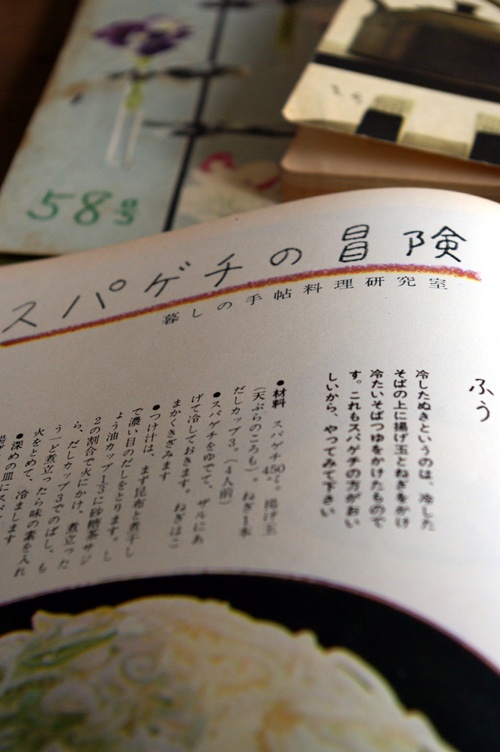 58
スパゲチの冒険
暮しの手帖料理研究室
ふう
冷したぬきというのは、冷した
そばの上に揚げ玉とねぎをかけ
冷たいそばつゆをかけたもので
す。これもスパゲチの方がおい
しいから、やってみて下さい
●材料 スパゲチ450g。揚げ玉
(天ぷらのころも)。ねぎ1本
だしカップ3。(4人前)
●スパゲチをゆでて、ザルにあ
げて冷しておきます。ねぎはこ
まかくきざみます
●つけ汁は、まず昆布と煮干し
で濃い目のだしをとります。し
ょう油カップ1/3に砂糖茶サジ
2の割合で火にかけ、煮立った
ら、だしカップ3でのばし、も
う一ど煮立ったら味の素を入れ
火をとめて、冷まします
●深めの皿にスパ